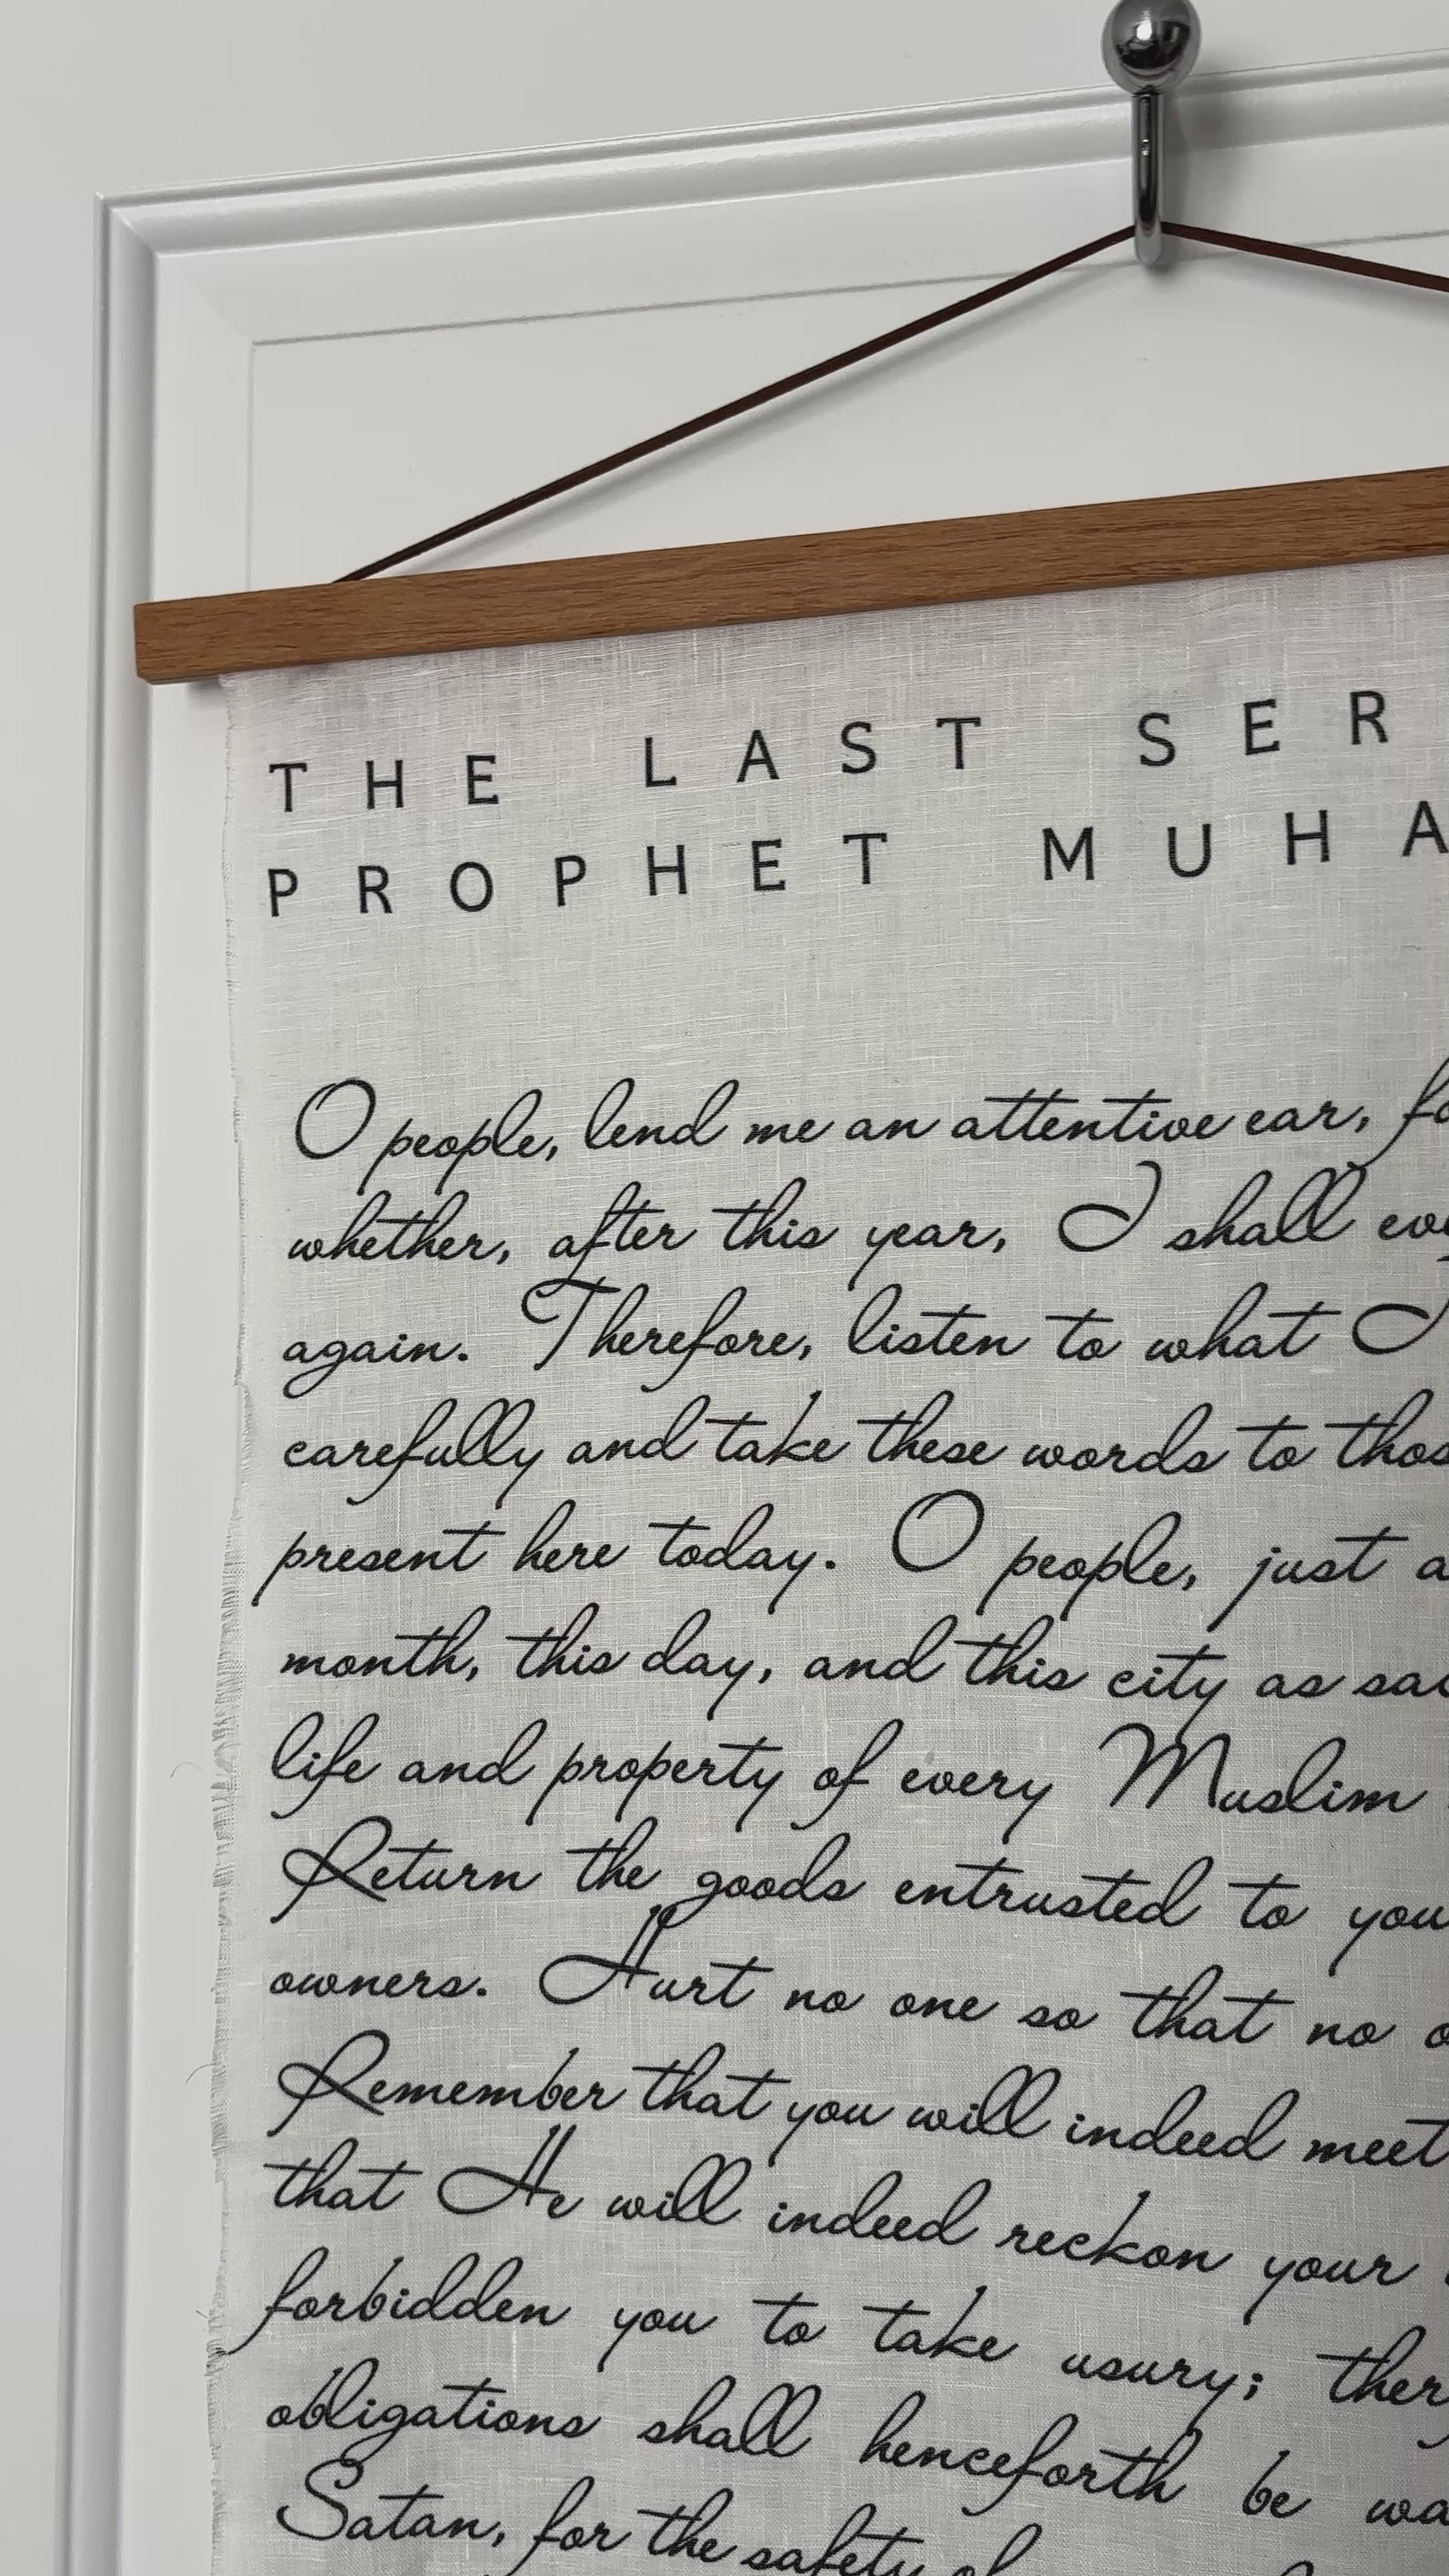 THE LAST SER
PROPHET MUHA
O people, lend me an attentive ear, fo
whether, after this year, I shall eve
again. Therefore, listen to what I
carefully and take these words to thos
present here today. O people, just a
month, this day, and this city as sac
life and property of every Muslim
Return the goods entrusted to you
owners. Hurt no one so that no o
Remember that you will indeed meet
that He will indeed reckon your
forbidden you to take usury; ther
obligations shall henceforth be wa
Satan, for the safety of